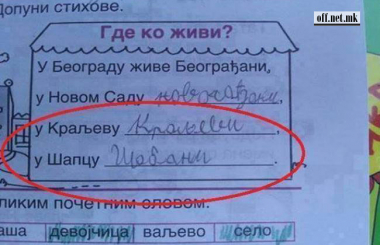 off.net.mk
Допуни стихове.
Где ко живи?
У Београду живе Београђани,
у Новом Саду новосађани,
у Краљеву Краљеви
у Шапцу Шабани.
ликим почетним словом:
аша девојчица ваљево село